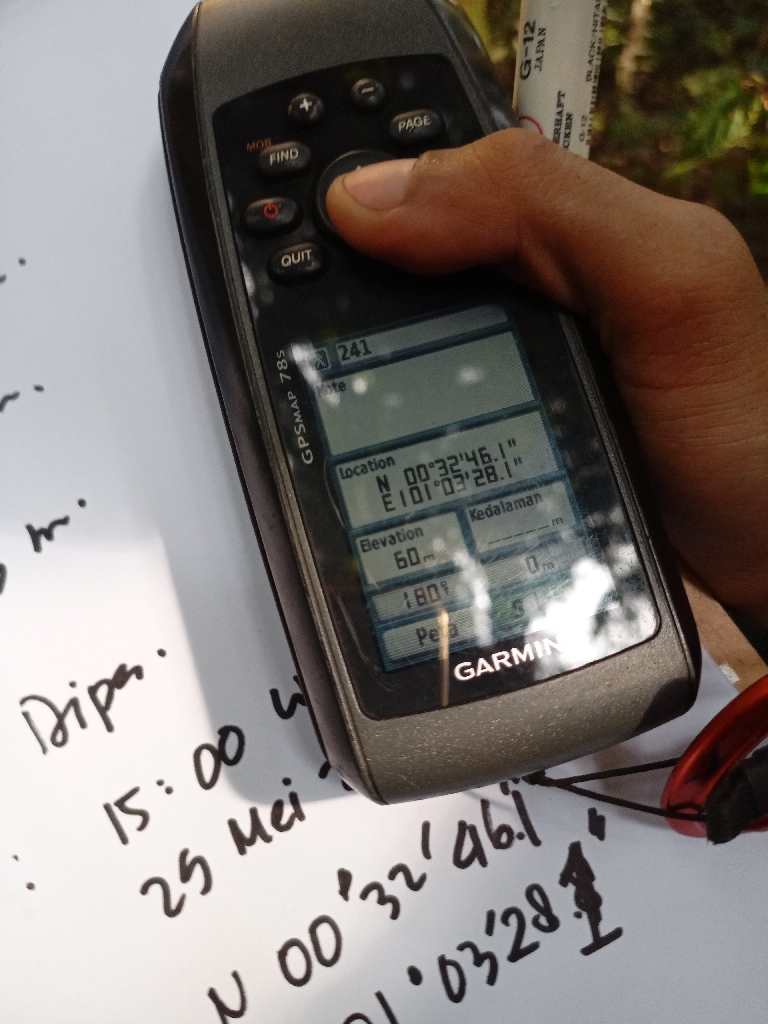 G-12
JAPAN
+
−
PAGE
MOB
FIND
QUIT
GPSMAP 78s
241
Note
Location
N 00°32'46.1"
E101°03'28.1"
Elevation
60 m
Kedalaman
_____ m
180°
0 m
Peta
GARMIN
m.
15:00
25 Mei
N 00°32'46.1"
01°03'28.1"